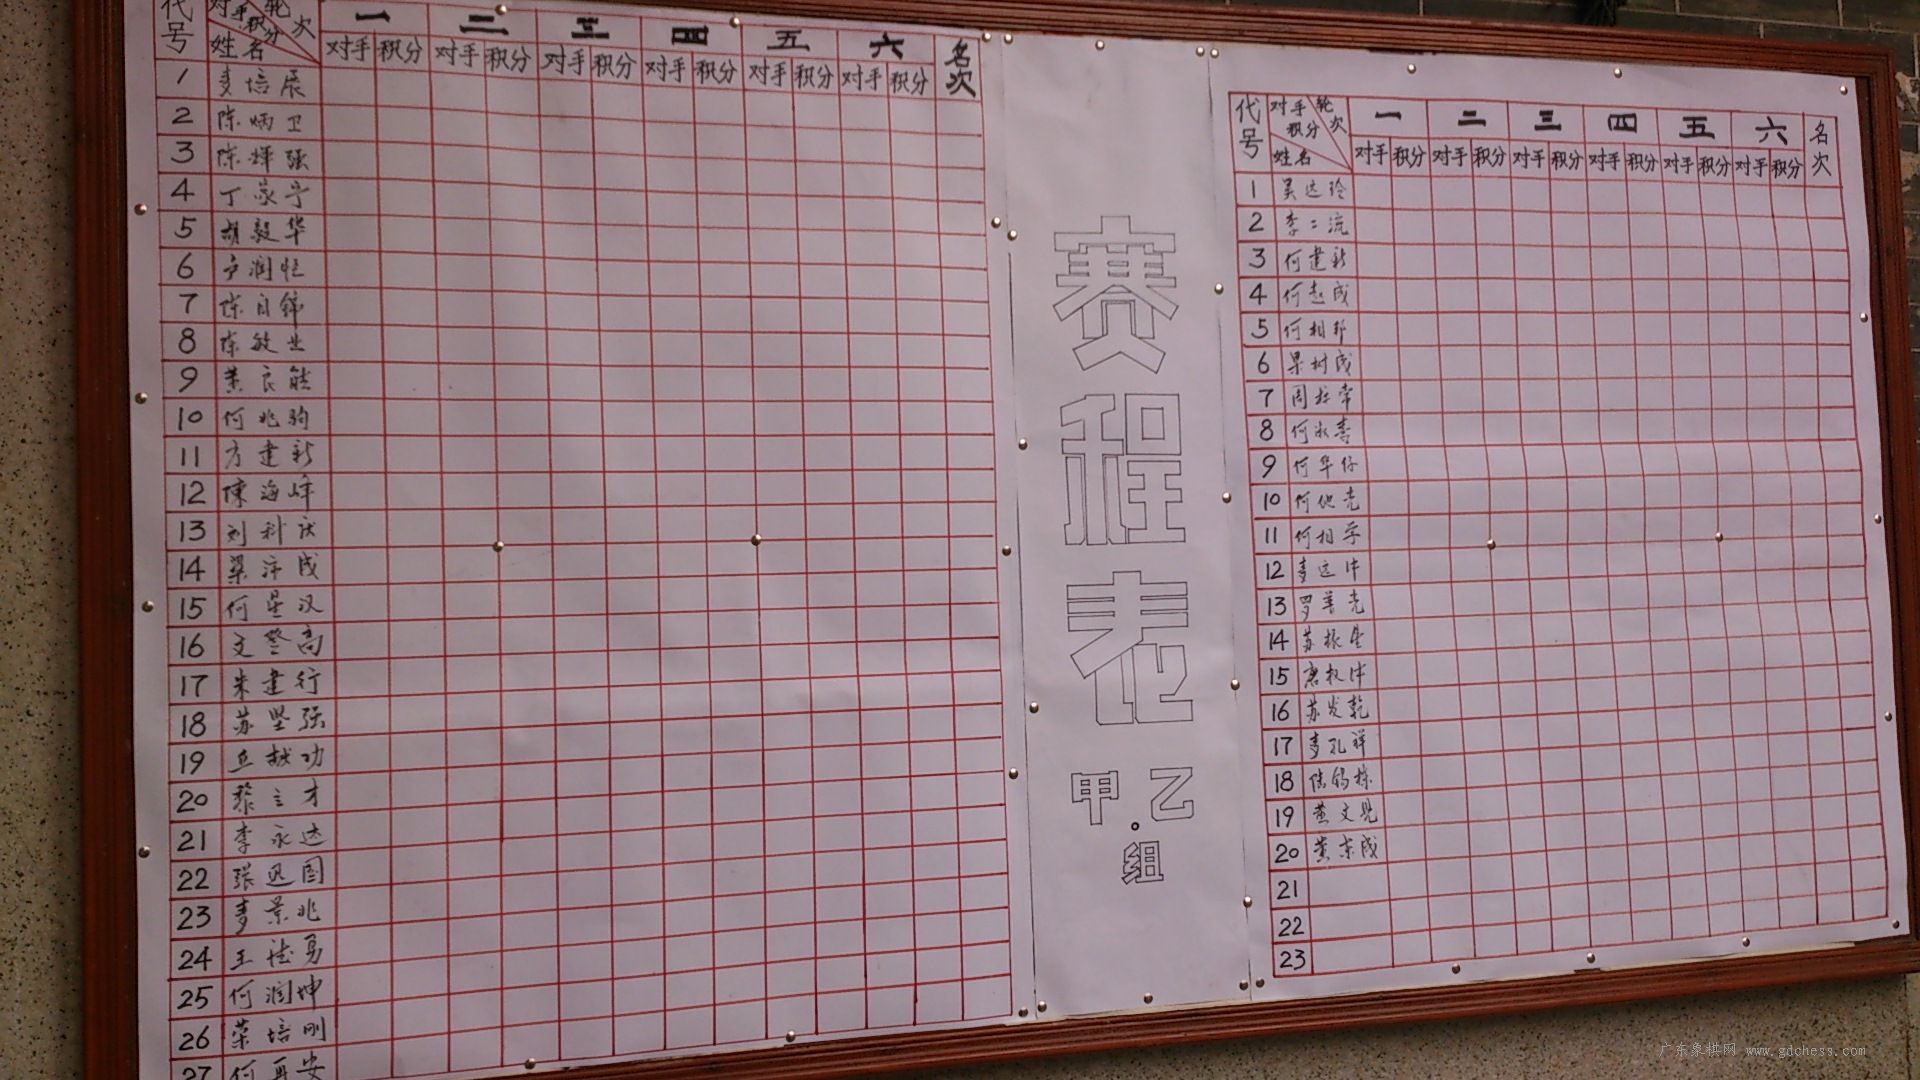 代号 姓名 对手积分 轮次 一 二 三 四 五 六 名次
对手 积分 对手 积分 对手 积分 对手 积分 对手 积分 对手 积分
1 麦培辰
2 陈炳卫
3 陈辉强
4 丁家宇
5 胡毅华
6 卢润恒
7 陈自锦
8 陈敏
9 黄良能
10 何兆驹
11 方建新
12 陳海峰
13 刘科庆
14 梁沛成
15 何星汉
16 文登高
17 朱建行
18 苏坚强
19 丘越功
20 黎立才
21 李永达
22 张迅国
23 麦景兆
24 王法勇
25 何润坤
26 荣培刚
27 何再安
赛程表
甲.乙
组
代号 姓名 对手积分 轮次 一 二 三 四 五 六 名次
对手 积分 对手 积分 对手 积分 对手 积分 对手 积分 对手 积分
1 吴达玲
2 李二流
3 何建新
4 何志成
5 何相邦
6 梁树成
7 周
8 何淑喜
9 何华仔
10 何
11 何相學
12 麦远
13 罗普光
14 苏振生
15 唐权
16 苏发乾
17 麦孔祥
18 陆锦栋
19 黄文见
20 黄东成
21
22
23
广东象棋网 www.gdchess.com